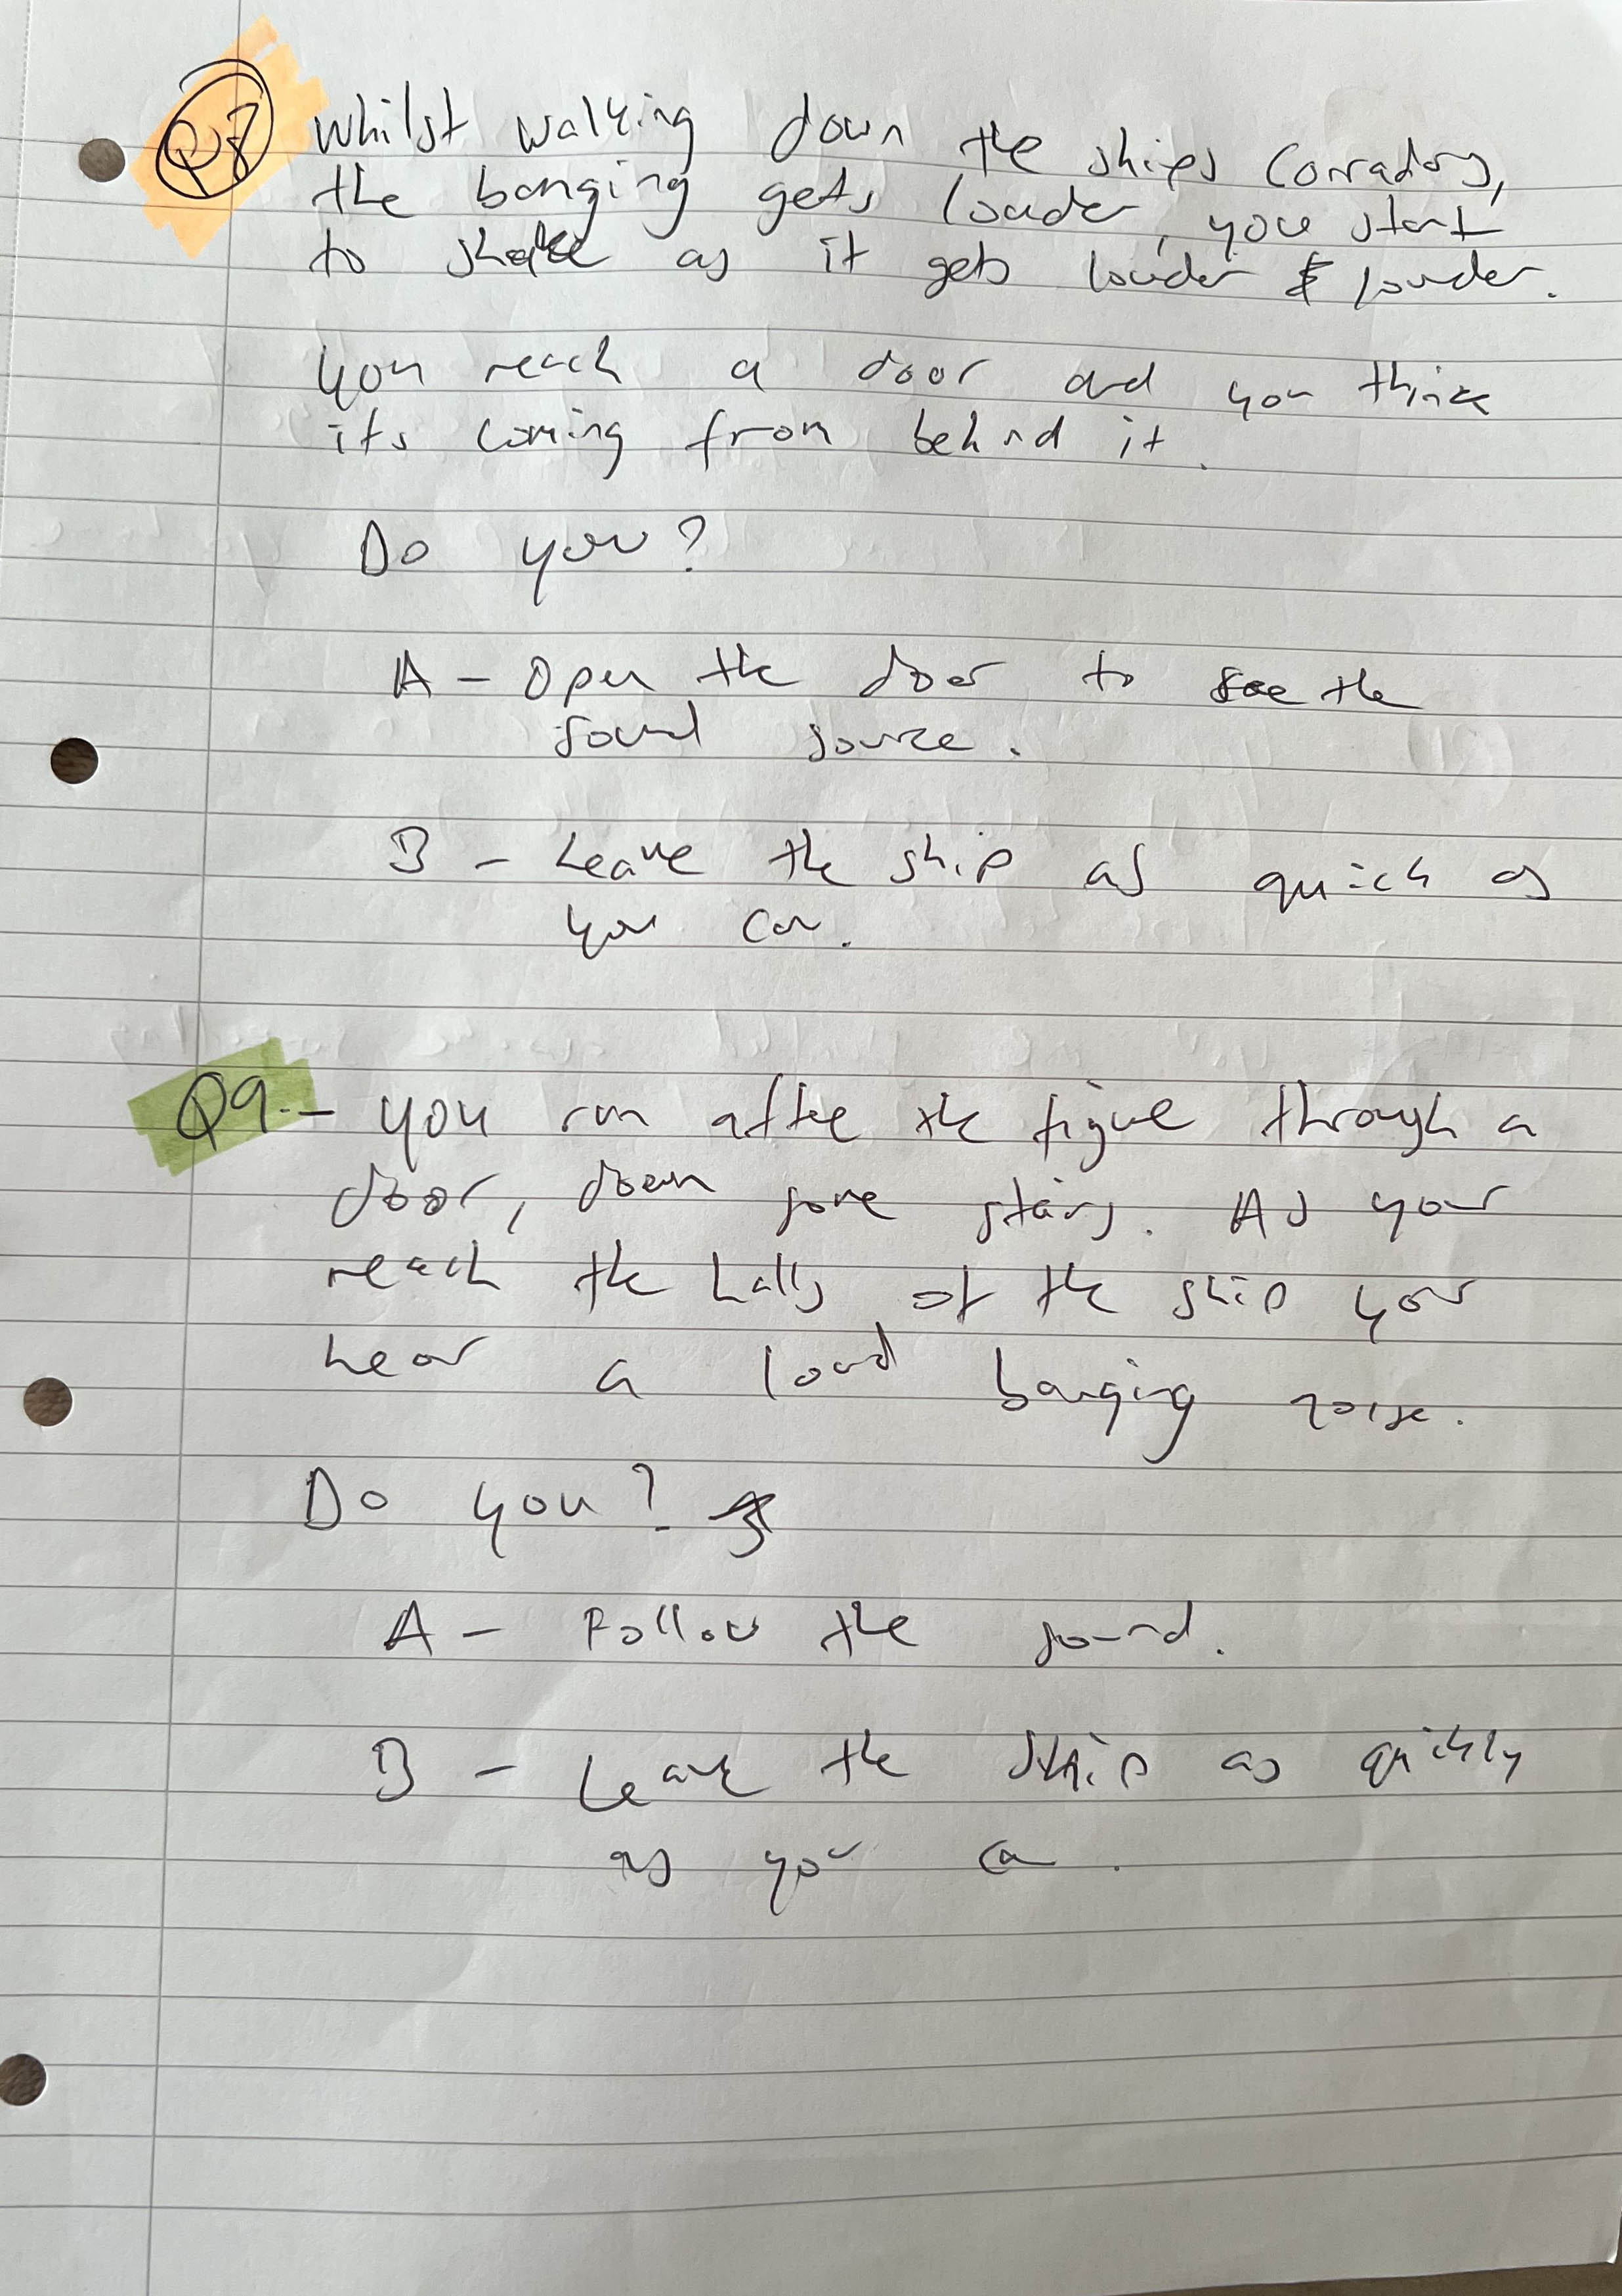 Q8 Whilst walking down the ships corradors,
the banging gets louder, you start
to shake as it gets louder & louder.
You reach a door and you think
its coming from behind it.
Do you?
A - Open the door to see the
sound source.
B - Leave the ship as quick as
you can.
Q9.- You run after the figure through a
door, down some stairs. As you
reach the halls of the ship you
hear a loud banging noise.
Do you?
A - Follow the sound.
B - Leave the ship as quickly
as you can.